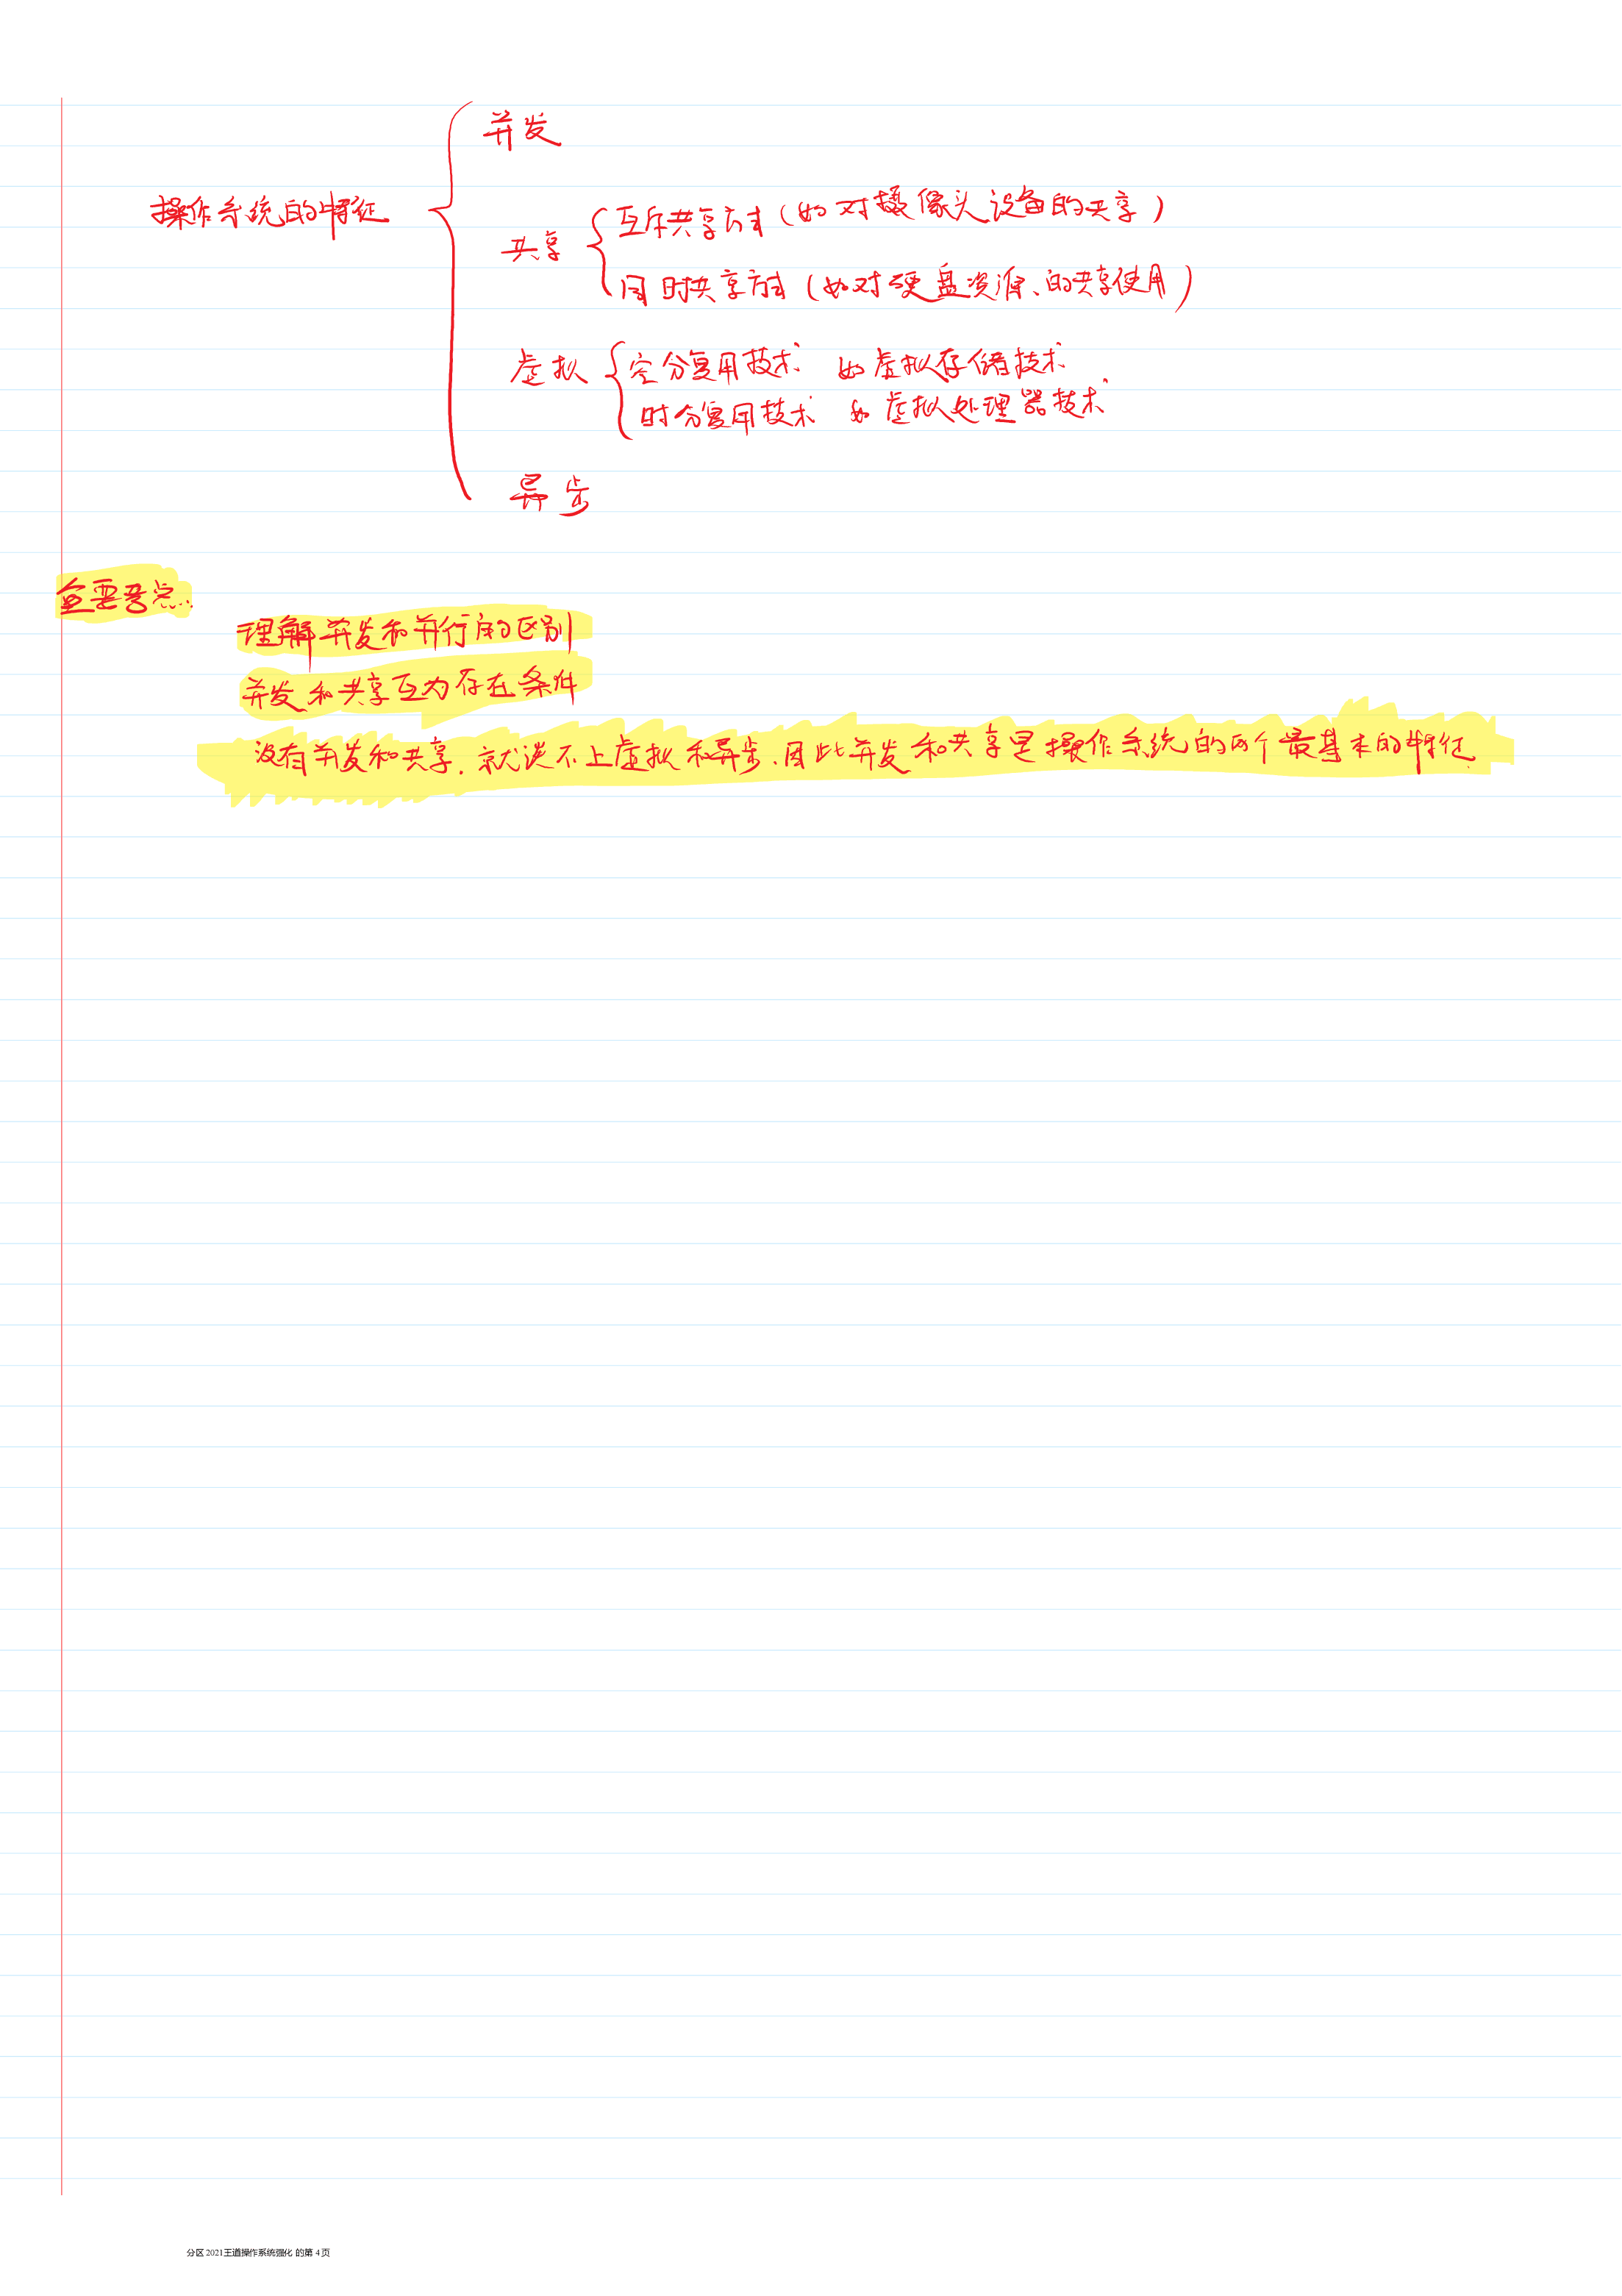 并发
操作系统的特征
共享
互斥共享方式(如对摄像头设备的共享)
同时共享方式(如对硬盘资源、的共享使用)
虚拟
空分复用技术 如虚拟存储技术
时分复用技术 如虚拟处理器技术
异步
重要考点
理解并发和并行的区别
并发和共享互为存在条件
没有并发和共享.就谈不上虚拟和异步、因此并发和共享是操作系统的两个最基本的特征
分区 2021王道操作系统强化 的第 4 页